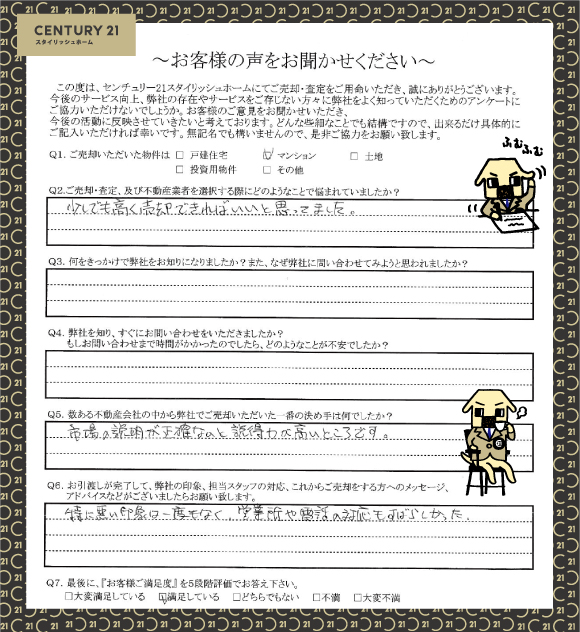 CENTURY 21
スタイリッシュホーム
～お客様の声をお聞かせください～
この度は、センチュリー21スタイリッシュホームにてご売却・査定をご用命いただき、誠にありがとうございます。
今後のサービス向上、弊社の存在やサービスをご存じない方々に弊社をよく知っていただくためのアンケートに
ご協力いただけないでしょうか。お客様のご意見をお聞かせいただき、
今後の活動に反映させていきたいと考えております。どんな些細なことでも結構ですので、出来るだけ具体的に
ご記入いただければ幸いです。無記名でも構いませんので、是非ご協力をお願い致します。
ふむふむ
Q1. ご売却いただいた物件は □ 戸建住宅 ☑ マンション □ 土地
□ 投資用物件 □ その他
Q2.ご売却・査定、及び不動産業者を選択する際にどのようなことで悩まれていましたか?
少しでも高く売却できればいいと思ってました。
Q3. 何をきっかけで弊社をお知りになりましたか?また、なぜ弊社に問い合わせてみようと思われましたか?
Q4. 弊社を知り、すぐにお問い合わせをいただきましたか?
もしお問い合わせまで時間がかかったのでしたら、どのようなことが不安でしたか?
Q5. 数ある不動産会社の中から弊社でご売却いただいた一番の決め手は何でしたか?
市場の説明が正確なのと説得力が高いところです。
Q6. お引渡しが完了して、弊社の印象、担当スタッフの対応、これからご売却をする方へのメッセージ、
アドバイスなどがございましたらお願い致します。
特に悪い印象は一度もなく、営業所や電話の対応もすばらしかった.
Q7. 最後に、『お客様ご満足度』を5段階評価でお答え下さい。
□大変満足している ☑満足している □どちらでもない □不満 □大変不満